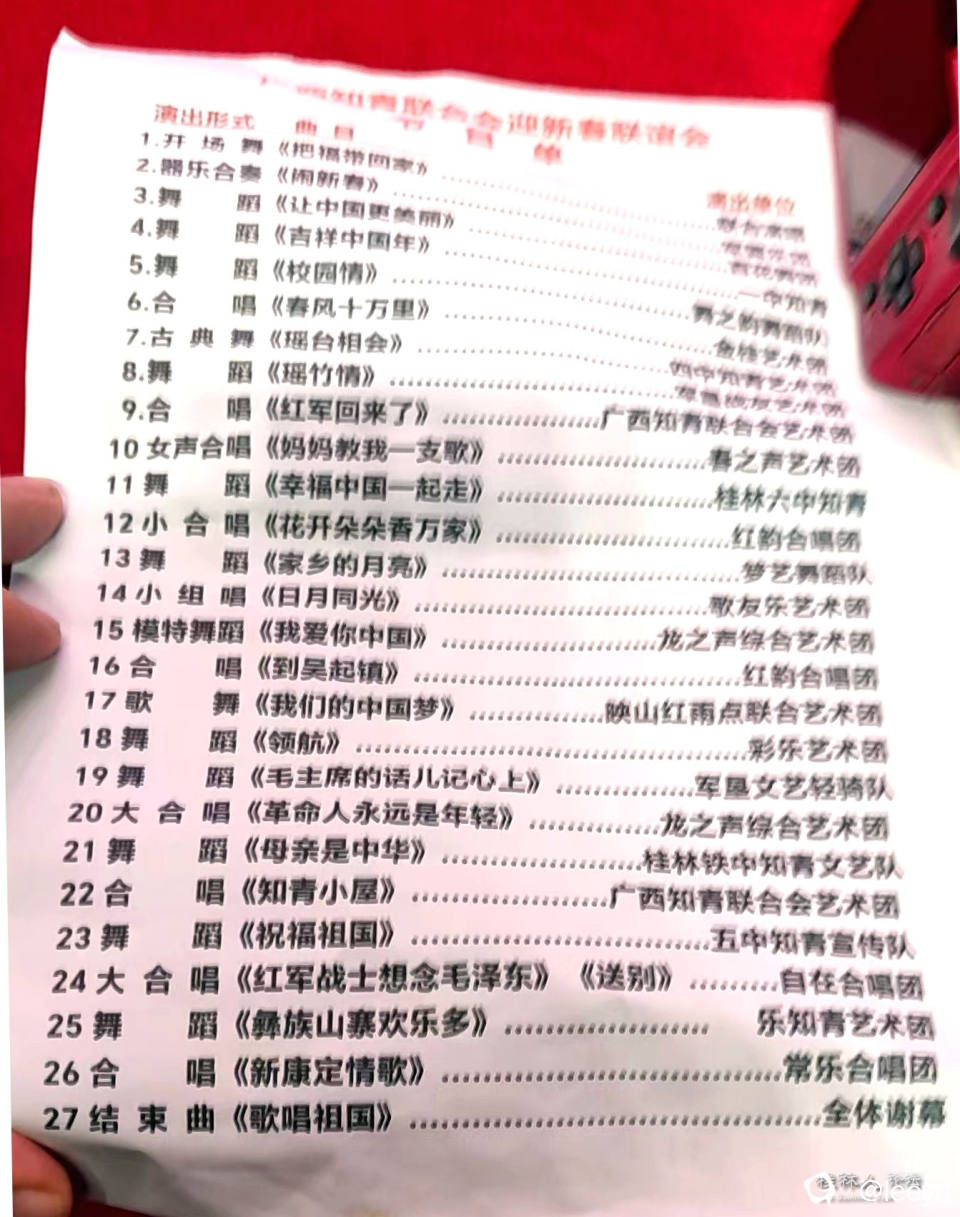 广西知青联合会迎新春联谊会
节目单
演出形式 曲目 演出单位
1.开场舞《把福带回家》
2.器乐合奏《闹新春》
3.舞蹈《让中国更美丽》
4.舞蹈《吉祥中国年》 一中知青
5.舞蹈《校园情》 舞之韵舞蹈队
6.合唱《春风十万里》 金桂艺术团
7.古典舞《瑶台相会》 四中知青艺术团
8.舞蹈《瑶竹情》
9.合唱《红军回来了》 广西知青联合会艺术团
10女声合唱《妈妈教我一支歌》 春之声艺术团
11舞蹈《幸福中国一起走》 桂林六中知青
12小合唱《花开朵朵香万家》 红韵合唱团
13舞蹈《家乡的月亮》 梦艺舞蹈队
14小组唱《日月同光》 歌友乐艺术团
15模特舞蹈《我爱你中国》 龙之声综合艺术团
16合唱《到吴起镇》 红韵合唱团
17歌舞《我们的中国梦》 映山红雨点联合艺术团
18舞蹈《领航》 彩乐艺术团
19舞蹈《毛主席的话儿记心上》 军垦文艺轻骑队
20大合唱《革命人永远是年轻》 龙之声综合艺术团
21舞蹈《母亲是中华》 桂林铁中知青文艺队
22合唱《知青小屋》 广西知青联合会艺术团
23舞蹈《祝福祖国》 五中知青宣传队
24大合唱《红军战士想念毛泽东》《送别》 自在合唱团
25舞蹈《彝族山寨欢乐多》 乐知青艺术团
26合唱《新康定情歌》 常乐合唱团
27结束曲《歌唱祖国》 全体谢幕
桂林人论坛